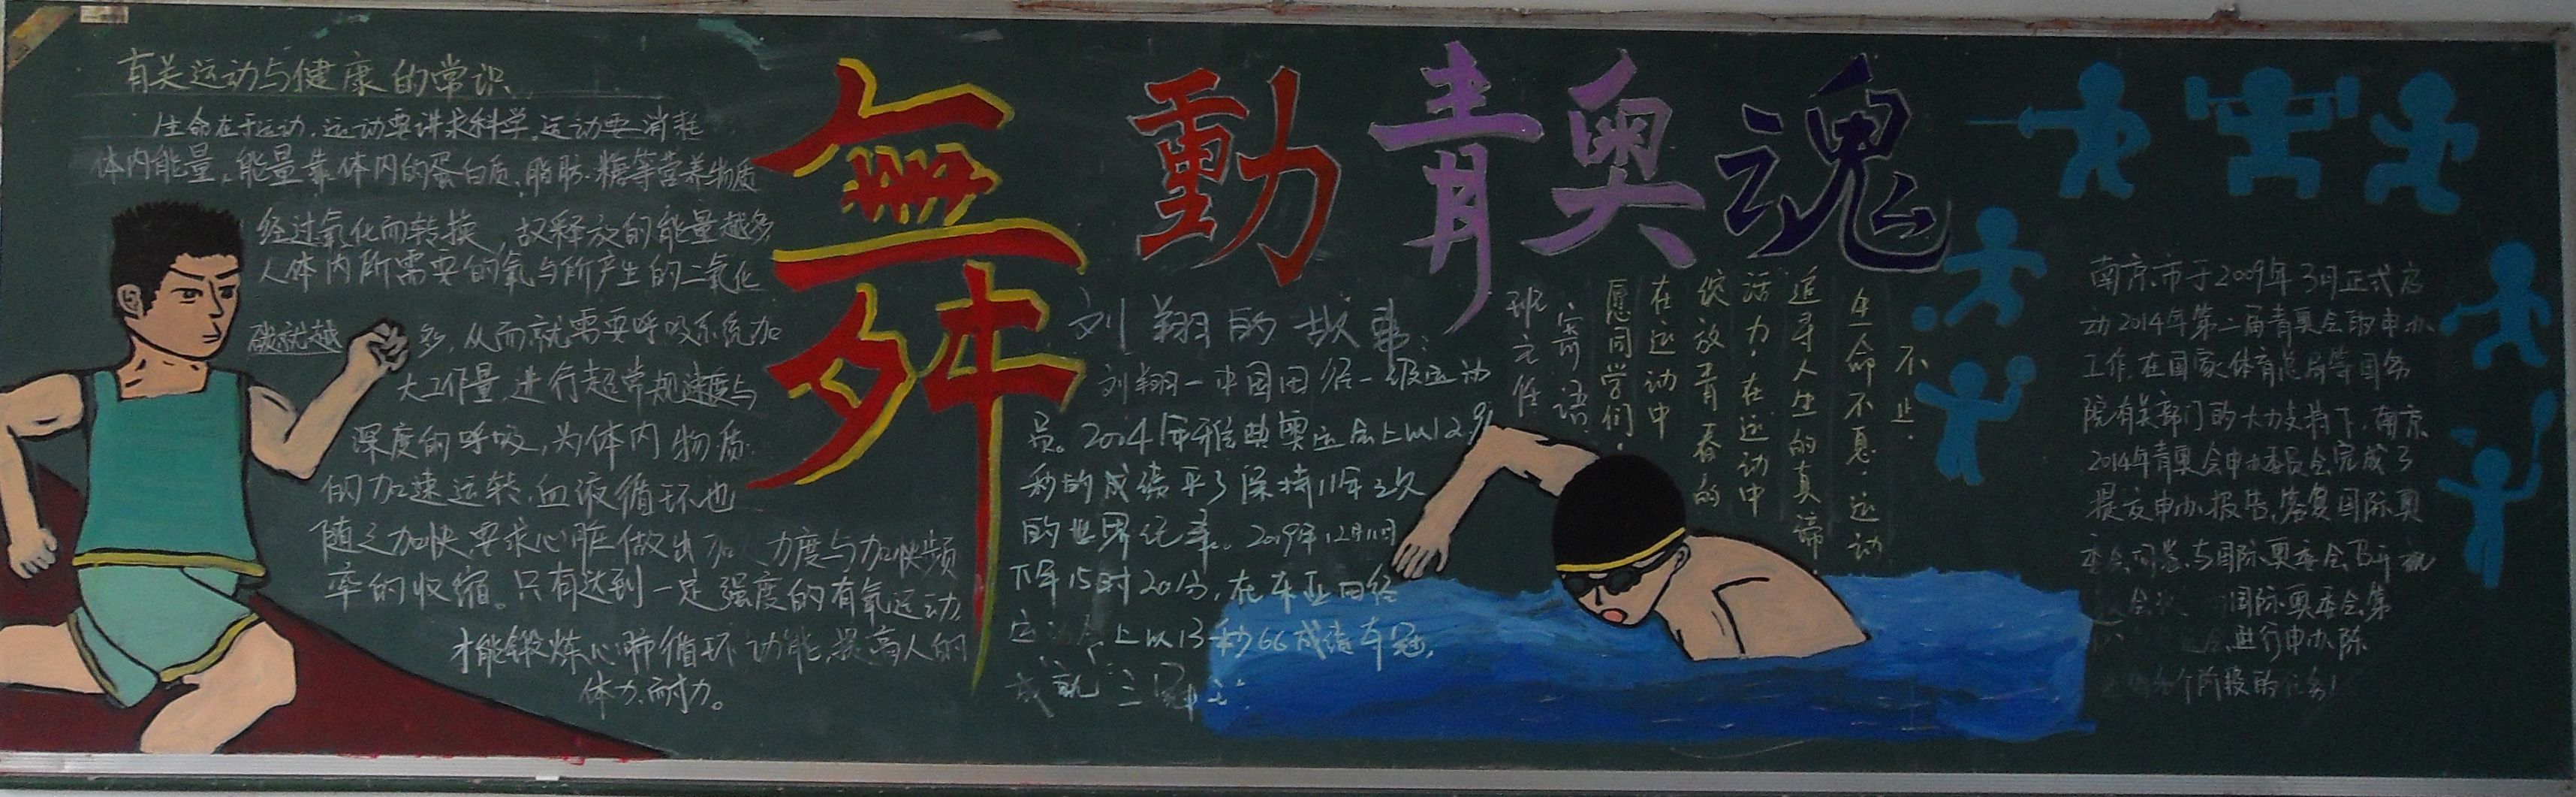 舞動青奧魂
有关运动与健康的常识
生命在于运动,运动要讲求科学。运动要消耗
体内能量。能量靠体内的蛋白质、脂肪、糖等营养物质
经过氧化而转换,故释放的能量越多
人体内所需要的氧与所产生的二氧化
碳就越多,从而就需要呼吸系统加
大工作量,进行超常规速度与
深度的呼吸,为体内物质
的加速运转,血液循环也
随之加快,要求心脏做出加大力度与加快频
率的收缩。只有达到一定强度的有氧运动,
才能锻炼心肺循环功能,提高人的
体力、耐力。
刘翔的故事:
刘翔一中国田径一级运动
员。2004年雅典奥运会上以12.91
秒的成绩平了保持11年之久
的世界纪录。2009年12月11日
下午15时20分,在东亚田径
运动会上以13秒66成绩夺冠,
成就"三冠王"
班主任
寄语:
愿同学们,
在运动中
绽放青春的
活力,在运动中
追寻人生的真谛,
生命不息,运动
不止。
南京市于2009年3月正式启
动2014年第二届青奥会的申办
工作,在国家体育总局等国务
院有关部门的大力支持下,南京
2014年青奥会申办委员会完成了
提交申办报告,答复国际奥
委会问卷,与国际奥委会召开视
会议 国际奥委会第
会进行申办陈
个阶段的任务!